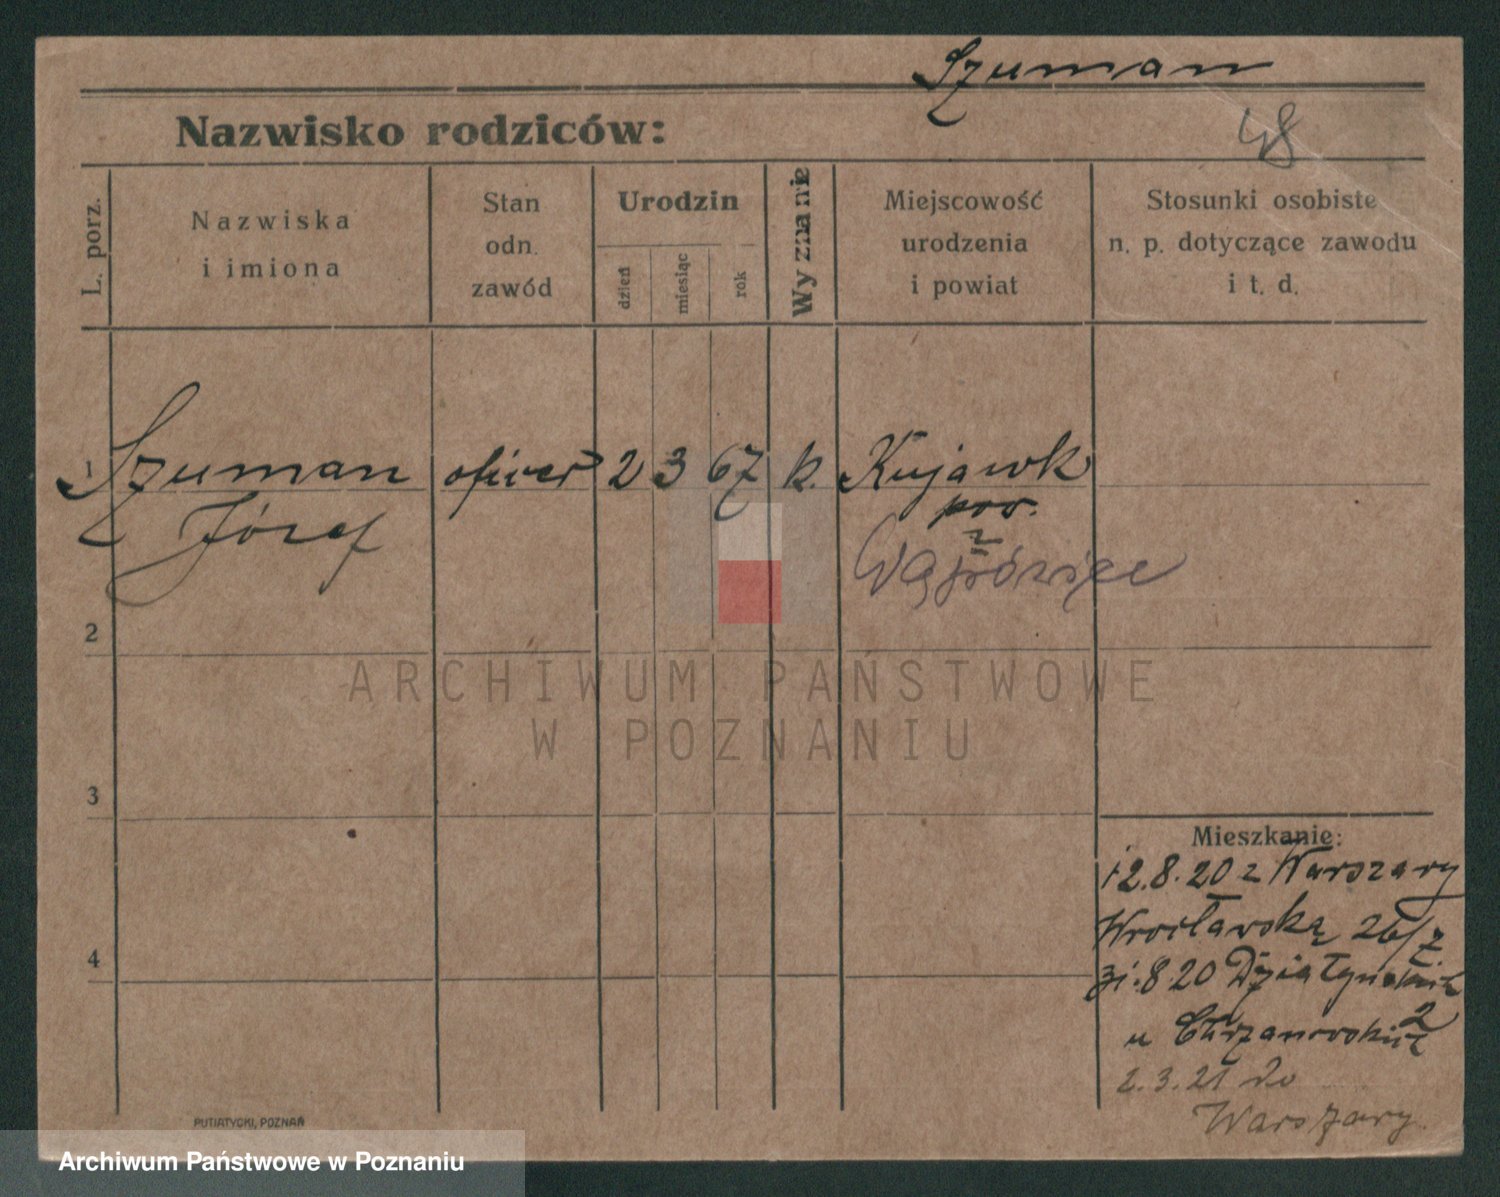 Szuman
48
Nazwisko rodziców:
L. porz.
Nazwiska
i imiona
Stan
odn.
zawód
Urodzin
dzień
miesiąc
rok
Wyznanie
Miejscowość
urodzenia
i powiat
Stosunki osobiste
n. p. dotyczące zawodu
i t. d.
1 Szuman oficer 2 3 67 k. Kujawk
Józef pow.
Wągrówiec
2
ARCHIWUM PAŃSTWOWE
W POZNANIU
3
Mieszkanie:
12.8.20 z Warszawy
Wrocławska 26/7
4
31.8 20 Działyńskich
2
u Chrzanowskich
2.3.21 do
Warszawy.
PUTIATYCKI, POZNAŃ
Archiwum Państwowe w Poznaniu